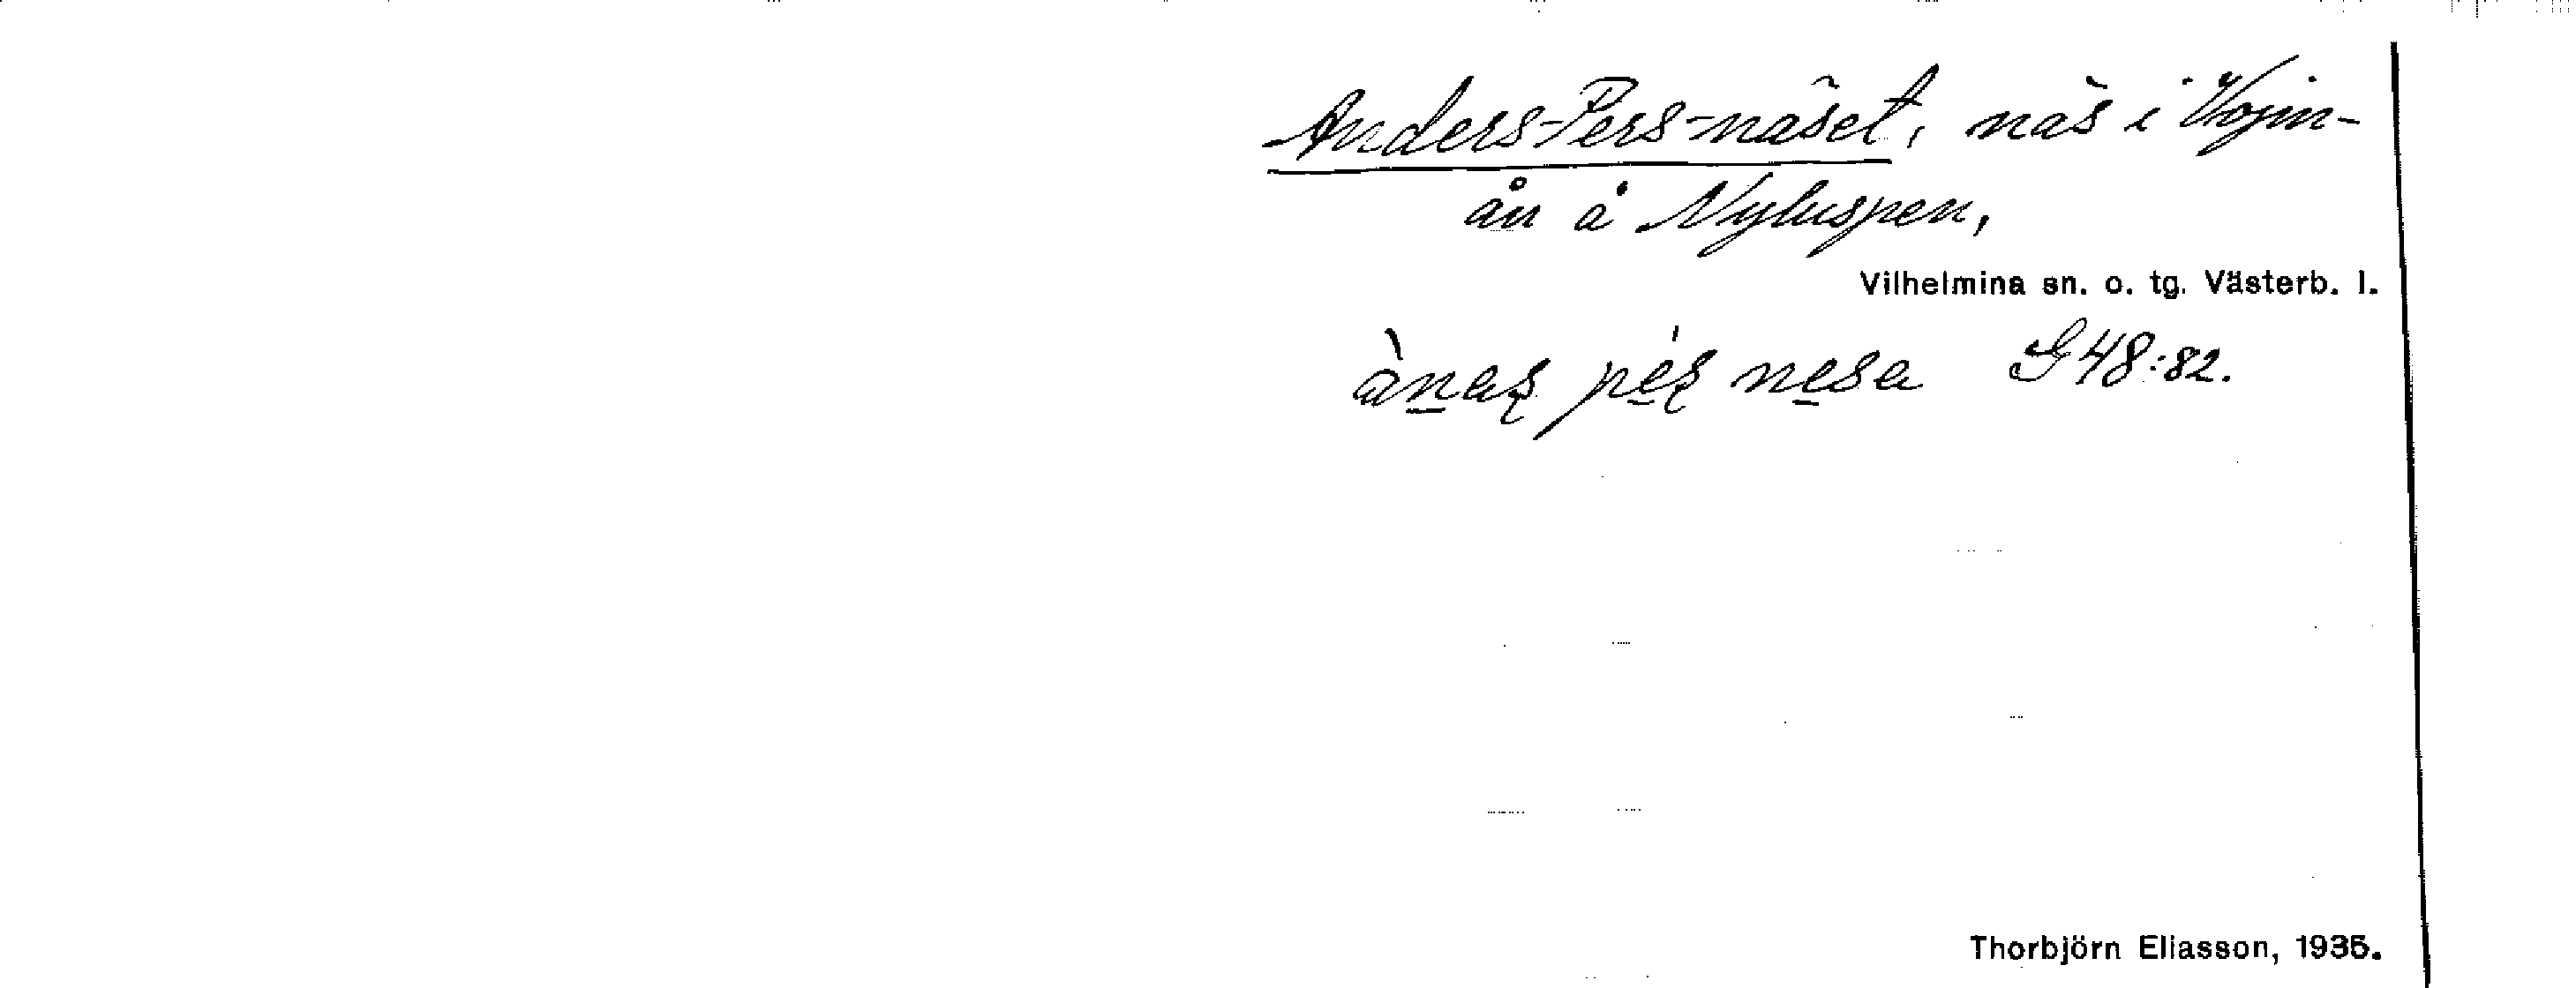 Anders-Pers-näset, näs i Vojm-
ån å Nyluspen,
Vilhelmina sn. o. tg. Västerb. l.
G48:82.
Thorbjörn Eliasson, 1935.